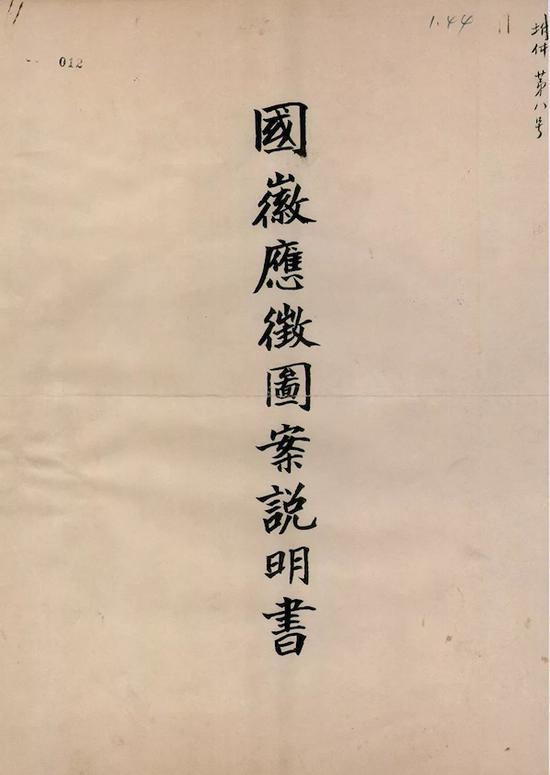 附件 第八号
1.44
012
國徽應徵圖案説明書